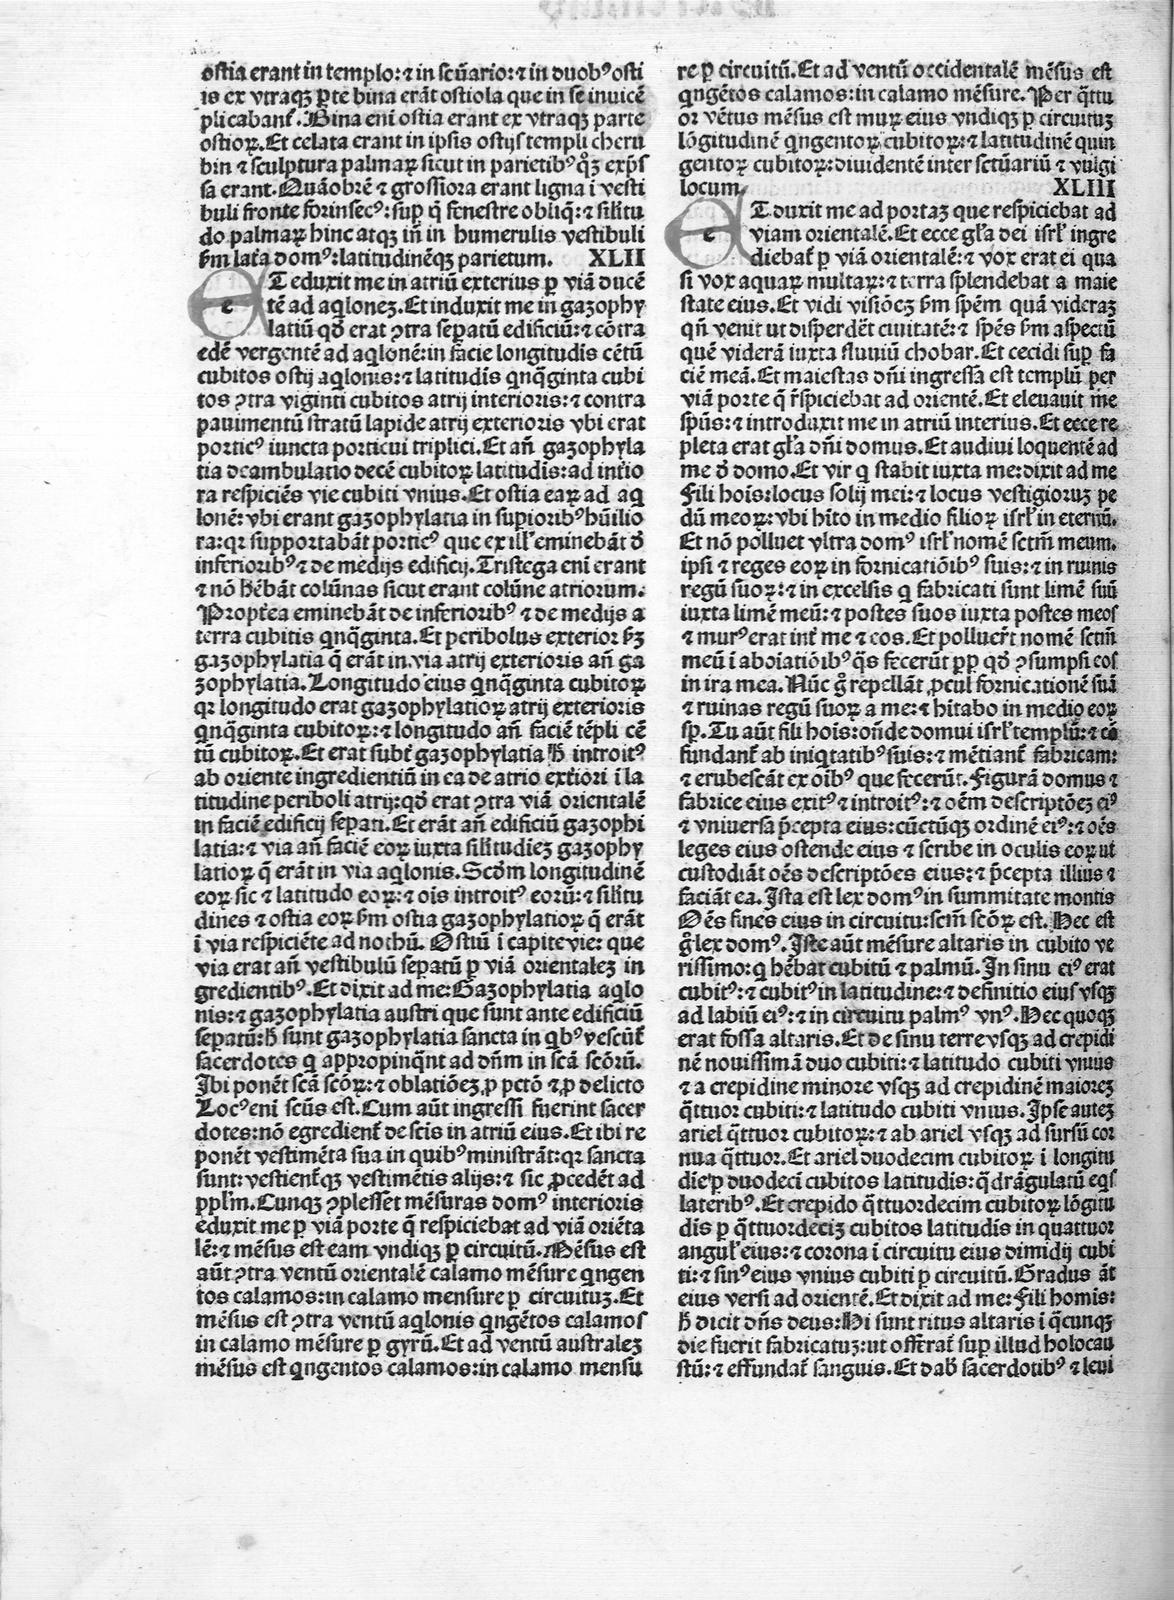 ostia erant in templo: ⁊ in scu̅ario: ⁊ in duobꝰ osti
is ex vtraqꝫ ꝑte bina era̅t ostiola que in se inuice̅
plicaban̅t. Bina eni̅ ostia erant ex vtraqꝫ parte
ostioꝝ. Et celata erant in ipsis ostijs templi cheru
bin ⁊ sculptura palmaꝝ sicut in parietibꝰ qꝫ exp̅s
sa erant. Qua̅obre̅ ⁊ grossiora erant ligna i̅ vesti
buli fronte forinsecꝰ: suꝑ q̅ fenestre obliq̅: ⁊ silitu
do palmaꝝ hinc atqꝫ in̅ in humerulis vestibuli
ẜm lat̅a domꝰ: latitudine̅qꝫ parietum. XLII
ET eduxit me in atriu̅ exterius ꝑ via̅ duce̅
te̅ ad aq̅lonez. Et induxit me in gazophy
latiu̅ qđ erat ꝯtra seꝑatu̅ edificiu̅: ⁊ co̅tra
ede̅ vergente̅ ad aq̅lone̅: in facie longitudis ce̅tu̅
cubitos ostij aq̅lonis: ⁊ latitudi̅s q̅nq̅ginta cubi
tos ꝯtra viginti cubitos atrij interioris: ⁊ contra
pauimentu̅ stratu̅ lapide atrij exterioris vbi erat
porticꝰ iuncta porticui triplici. Et an̅ gazophyla
tia deambulatio dece̅ cubitoꝝ latitudis: ad int̅io
ra respicie̅s vie cubiti vnius. Et ostia eaꝝ ad aq̅
lone̅: vbi erant gazophylatia in suꝑioribꝰ hu̅ilio
ra: qꝛ supportaba̅t porticꝰ que ex ill̅ emineba̅t đ
inferioribꝰ ⁊ de medijs edificij. Tristega eni̅ erant
⁊ no̅ he̅ba̅t colu̅nas sicut erant colu̅ne atriorum.
Propt̅ea emineba̅t de inferioribꝰ ⁊ de medijs a
terra cubitis q̅nq̅ginta. Et peribolus exterior ẜꝫ
gazophylatia q̅ era̅t in via atrij exterioris an̅ ga
zophylatia. Longitudo eius q̅nq̅ginta cubitoꝝ
qꝛ longitudo erat gazophylatioꝝ atrij exterioris
q̅nq̅ginta cubitoꝝ: ⁊ longitudo an̅ facie̅ te̅pli ce̅
tu̅ cubitoꝝ. Et erat subt̅ gazophylatia h̅ introitꝰ
ab oriente ingredientiu̅ in ea de atrio ext̅iori i̅ la
titudine periboli atrij: qđ erat ꝯtra via̅ orientale̅
in facie̅ edificij seꝑati. Et era̅t an̅ edificiu̅ gazophi
latia: ⁊ via an̅ facie̅ eoꝝ iuxta silitudiez gazophy
latioꝝ q̅ era̅t in via aq̅lonis. Scđm longitudine̅
eoꝝ sic ⁊ latitudo eoꝝ: ⁊ oi̅s introitꝰ eoru̅: ⁊ silitu
dines ⁊ ostia eoꝝ ẜm ostia gazophylatioꝝ q̅ era̅t
i̅ via respicie̅te ad nothu̅. Ostiu̅ i̅ capite vie: que
via erat an̅ vestibulu̅ seꝑatu̅ ꝑ via̅ orientalez in
gredientibꝰ. Et dixit ad me: Gazophylatia aq̅lo
nis: ⁊ gazophylatia austri que sunt ante edificiu̅
seꝑatu̅: h̅ sunt gazophylatia sancta in q̅bꝰ vescun̅t
sacerdotes q̅ appropinq̅nt ad dn̅m in sc̅a sc̅oru̅.
Ibi pone̅t sc̅a sc̅oꝝ: ⁊ oblatio̅ez ꝓ pct̅o ⁊ ꝓ delicto
Locꝰ eni̅ sc̅us est. Cum au̅t ingressi fuerint sacer
dotes: no̅ egredien̅t de sc̅is in atriu̅ eius. Et ibi re
pone̅t vestime̅ta sua in quibꝰ ministra̅t: qꝛ sancta
sunt: vestien̅tqꝫ vestime̅tis alijs: ⁊ sic ꝓcede̅t ad
ppl̅m. Cunqꝫ ꝯplesset me̅suras domꝰ interioris
eduxit me ꝑ via̅ porte q̅ respiciebat ad via̅ orie̅ta
le̅: ⁊ me̅sus est eam vndiqꝫ ꝑ circuitu̅. Me̅sus est
au̅t ꝯtra ventu̅ orientale̅ calamo me̅sure q̅ngen
tos calamos: in calamo mensure ꝑ circuituz. Et
me̅sus est ꝯtra ventu̅ aq̅lonis q̅nge̅tos calamos
in calamo me̅sure ꝑ gyru̅. Et ad ventu̅ australez
me̅sus est q̅ngentos calamos: in calamo mensu
re ꝑ circuitu̅. Et ad ventu̅ occidentale̅ me̅sus est
q̅nge̅tos calamos: in calamo me̅sure. Per q̅ttu
or ve̅tus me̅sus est muꝝ eius vndiqꝫ ꝑ circuituz
lo̅gitudine̅ q̅ngentoꝝ cubitoꝝ: ⁊ latitudine̅ quin
gentoꝝ cubitoꝝ: diuidente̅ inter sc̅tuariu̅ ⁊ vulgi
locum. XLIII
ET duxit me ad portaz que respiciebat ad
viam orientale̅. Et ecce gl̅a dei isrl̅ ingre
diebat̅ ꝑ via̅ orientale̅: ⁊ vox erat ei qua
si vox aquaꝝ multaꝝ: ⁊ terra splendebat a maie
state eius. Et vidi visio̅ez ẜm spe̅m qua̅ videraz
qn̅ venit ut disperde̅t ciuitate̅: ⁊ spe̅s ẜm aspectu̅
que̅ videra̅ iuxta fluuiu̅ chobar. Et cecidi suꝑ fa
cie̅ mea̅. Et maiestas dn̅i ingressa est templu̅ per
via̅ porte q̅ r̅spiciebat ad oriente̅. Et eleuauit me
sp̅us: ⁊ introduxit me in atriu̅ interius. Et ecce re
pleta erat gl̅a dn̅i domus. Et audiui loquente̅ ad
me đ domo. Et vir q̅ stabit iuxta me: dixit ad me
Fili hoi̅s: locus solij mei: ⁊ locus vestigioruz pe
du̅ meoꝝ: vbi hi̅to in medio filioꝝ isrl̅ in eternu̅.
Et no̅ polluet vltra domꝰ isrl̅ nome̅ sct̅m meum.
ipsi ⁊ reges eoꝝ in fornicatio̅ibꝰ suis: ⁊ in ruinis
regu̅ suoꝝ: ⁊ in excelsis q̅ fabricati sunt lime̅ suu̅
iuxta lime̅ meu̅: ⁊ postes suos iuxta postes meos
⁊ murꝰ erat int̅ me ⁊ eos. Et polluer̅t nome̅ sct̅m
meu̅ i̅ aboi̅atio̅ibꝰ q̅s feceru̅t ꝓpꝑ qđ ꝯsumpsi eos
in ira mea. Nu̅c g̅ repella̅t ꝓcul fornicatione̅ sua̅
⁊ ruinas regu̅ suoꝝ a me: ⁊ hi̅tabo in medio eoꝝ
sꝑ. Tu au̅t fili hoi̅s: on̅de domui isrl̅ templu̅: ⁊ co̅
fundan̅t ab iniq̅tatibꝰ suis: ⁊ me̅tian̅t fabricam:
⁊ erubesca̅t ex oi̅bꝰ que fecerut̅. Figura̅ domus ⁊
fabrice eius exitꝰ ⁊ introitꝰ: ⁊ oe̅m descriptio̅ez eiꝰ
⁊ vniuersa p̅cepta eius: cu̅ctu̅qꝫ ordine̅ eiꝰ: ⁊ oe̅s
leges eius ostende eius ⁊ scribe in oculis eoꝝ ut
custodia̅t oe̅s descriptio̅es eius: ⁊ p̅cepta illius ⁊
facia̅t ea. Ista est lex domꝰ in summitate montis
Oe̅s fines eius in circuitu: sct̅m sc̅oꝝ est. Hec est
g̅ lex domꝰ. Iste au̅t me̅sure altaris in cubito ve
rissimo: q̅ he̅bat cubitu̅ ⁊ palmu̅. In sinu eiꝰ erat
cubitꝰ: ⁊ cubitꝰ in latitudine: ⁊ definitio eius vsqꝫ
ad labiu̅ eiꝰ: ⁊ in circuitu palmꝰ vnꝰ. Hec quoqꝫ
erat fossa altaris. Et de sinu terre vsqꝫ ad crepidi
ne̅ nouissima̅ duo cubiti: ⁊ latitudo cubiti vnius
⁊ a crepidine minore vsqꝫ ad crepidine̅ maiorez
q̅ttuor cubiti: ⁊ latitudo cubiti vnius. Ipse autez
ariel q̅ttuor cubitoꝝ: ⁊ ab ariel vsqꝫ ad sursu̅ cor
nua q̅ttuor. Et ariel duodecim cubitoꝝ i̅ longitu
die̅ ꝑ duodeci̅ cubitos latitudis: q̅dra̅gulatu̅ eq̅s
lateribꝰ. Et crepido q̅ttuordecim cubitoꝝ lo̅gitu
dis ꝑ q̅ttuordeciz cubitos latitudis in quattuor
angul̅ eius: ⁊ corona i̅ circuitu eius dimidij cubi
ti: ⁊ sinꝰ eius vnius cubiti ꝑ circuitu̅. Gradus a̅t
eius versi ad oriente̅. Et dixit ad me: Fili homis:
h̅ dicit dn̅s deus: Hi sunt ritus altaris i̅ q̅cunqꝫ
die fuerit fabricatuz: ut offerat̅ suꝑ illud holocau
stu̅: ⁊ effundat̅ sanguis. Et dab̅ sacerdotibꝰ ⁊ leui